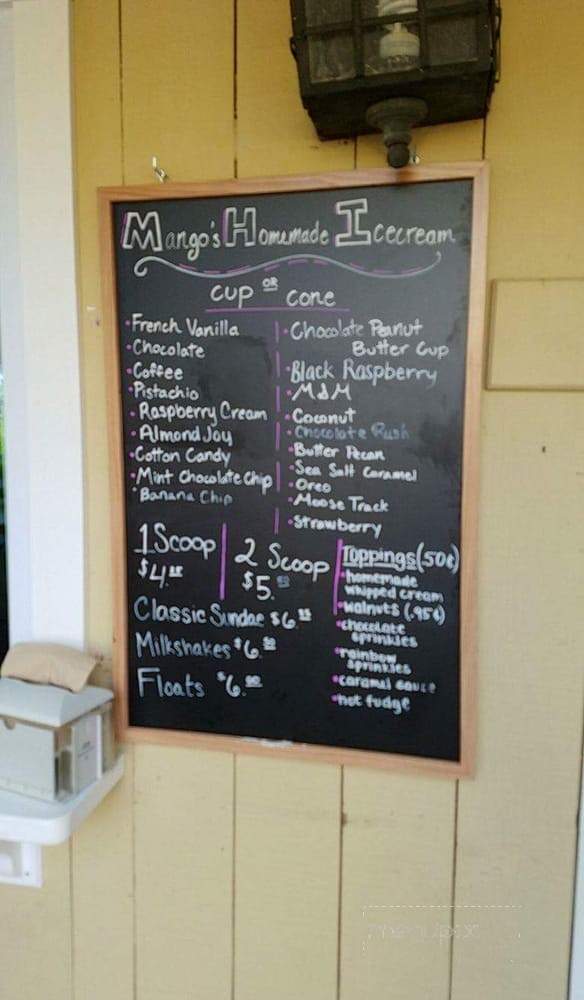 Mango's Homemade Icecream
cup or cone
French Vanilla
Chocolate
Coffee
Pistachio
Raspberry Cream
Almond Joy
Cotton Candy
Mint Chocolate Chip
Banana Chip
Chocolate Peanut
Butter Cup
Black Raspberry
M&M
Coconut
Chocolate Rush
Butter Pecan
Sea Salt Caramel
Oreo
Moose Track
Strawberry
1 Scoop
$4.
2 Scoop
$5.
Classic Sundae $6.
Milkshakes $6.
Floats $6.
Toppings (50¢)
homemade
whipped cream
walnuts (.95¢)
chocolate
sprinkles
rainbow
sprinkles
caramel sauce
hot fudge